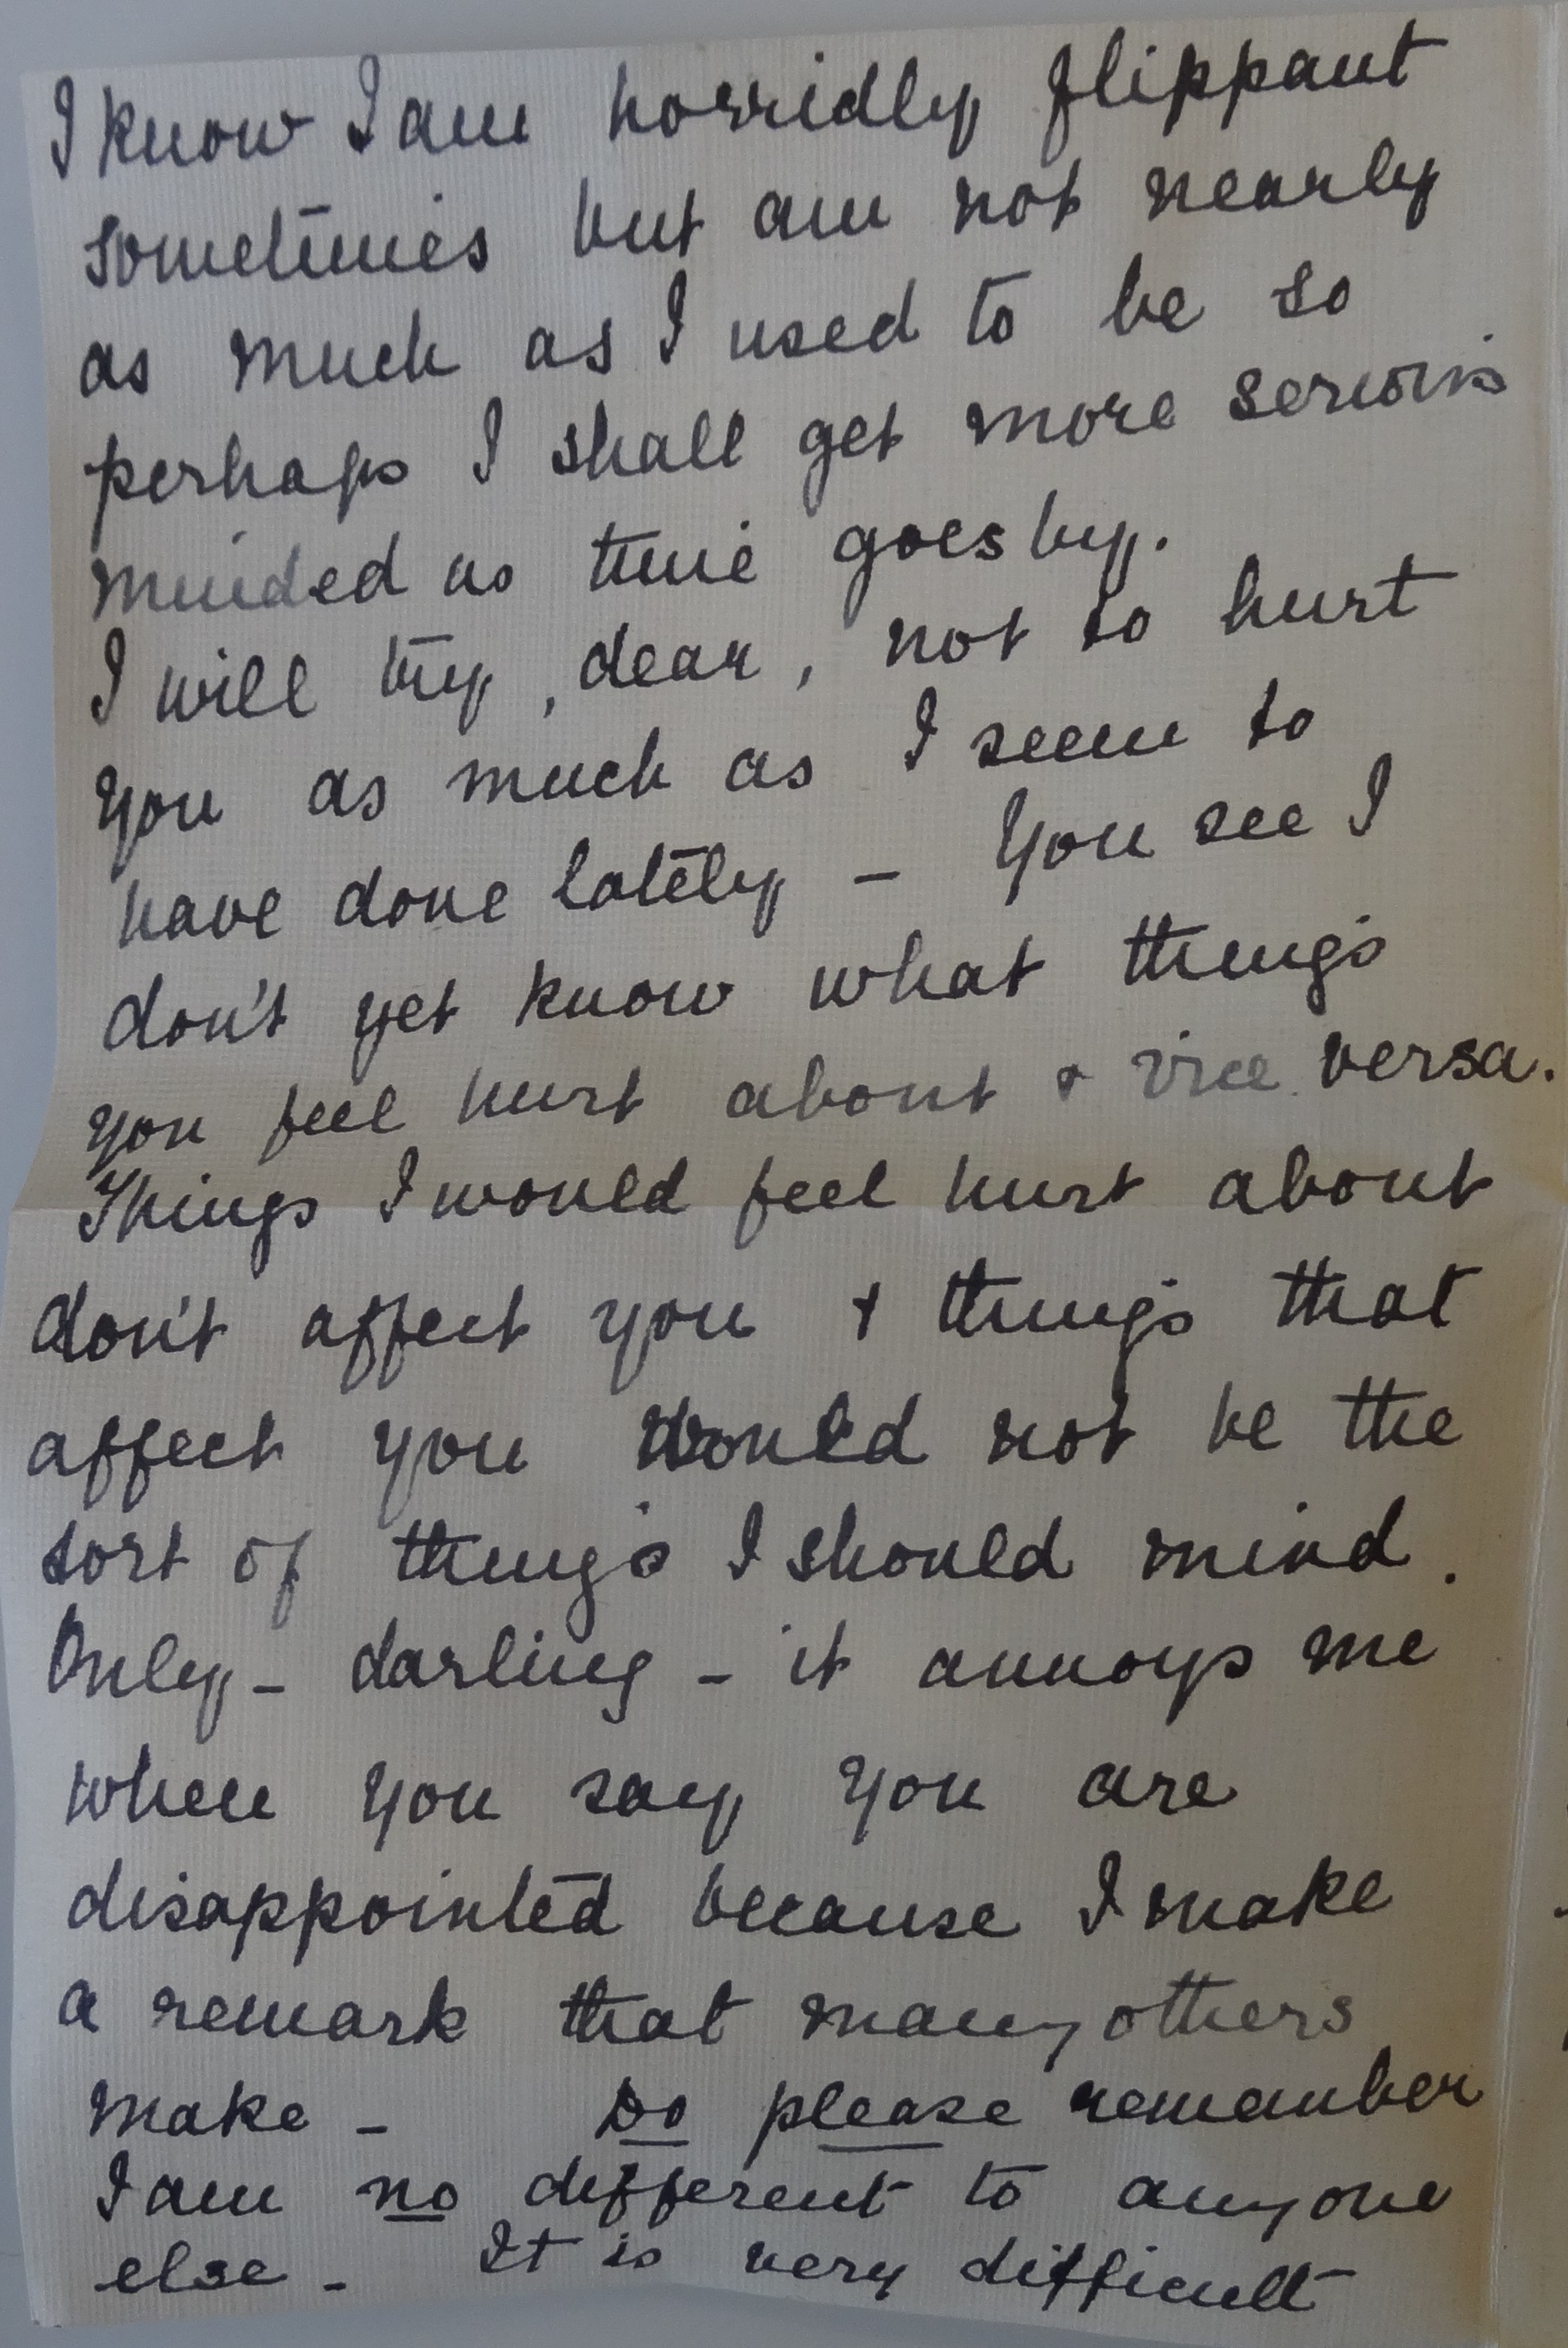 I know I am horridly flippant
sometimes but am not nearly
as much as I used to be so
perhaps I shall get more serious
minded as time goes by.
I will try, dear, not to hurt
you as much as I seem to
have done lately – You see I
don't yet know what things
you feel hurt about & vice versa.
Things I would feel hurt about
don't affect you & things that
affect you would not be the
sort of things I should mind.
Only – darling – it annoys me
when you say you are
disappointed because I make
a remark that many others
make – Do please remember
I am no different to anyone
else – It is very difficult